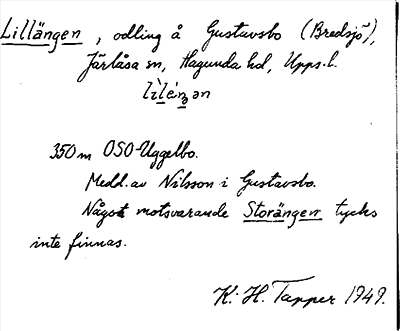 Lillängen, odling å Gustavsbo (Bredsjö),
Järlåsa sn, Hagunda hd, Upps. l.
350 m OSO Uggelbo.
Medd. av Nilsson i Gustavsbo.
Något motsvarande Storängen tycks
inte finnas.
K. H. Tapper 1949.